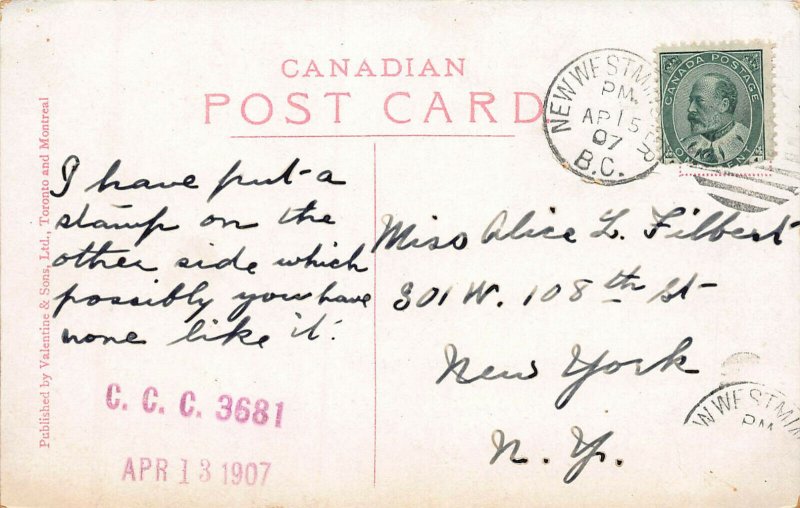 CANADIAN
POST CARD
Published by Valentine & Sons, Ltd., Toronto and Montreal
I have put a
stamp on the
other side which
possibly you have
none like it.
C. C. C. 3681
APR 13 1907
NEW WESTMIN
PM
AP 15
07
B.C.
CANADA POSTAGE
ONE CENT
Miss Alice L. Filbert
301 W. 108th St
New York
N. Y.
W WESTMIN
PM